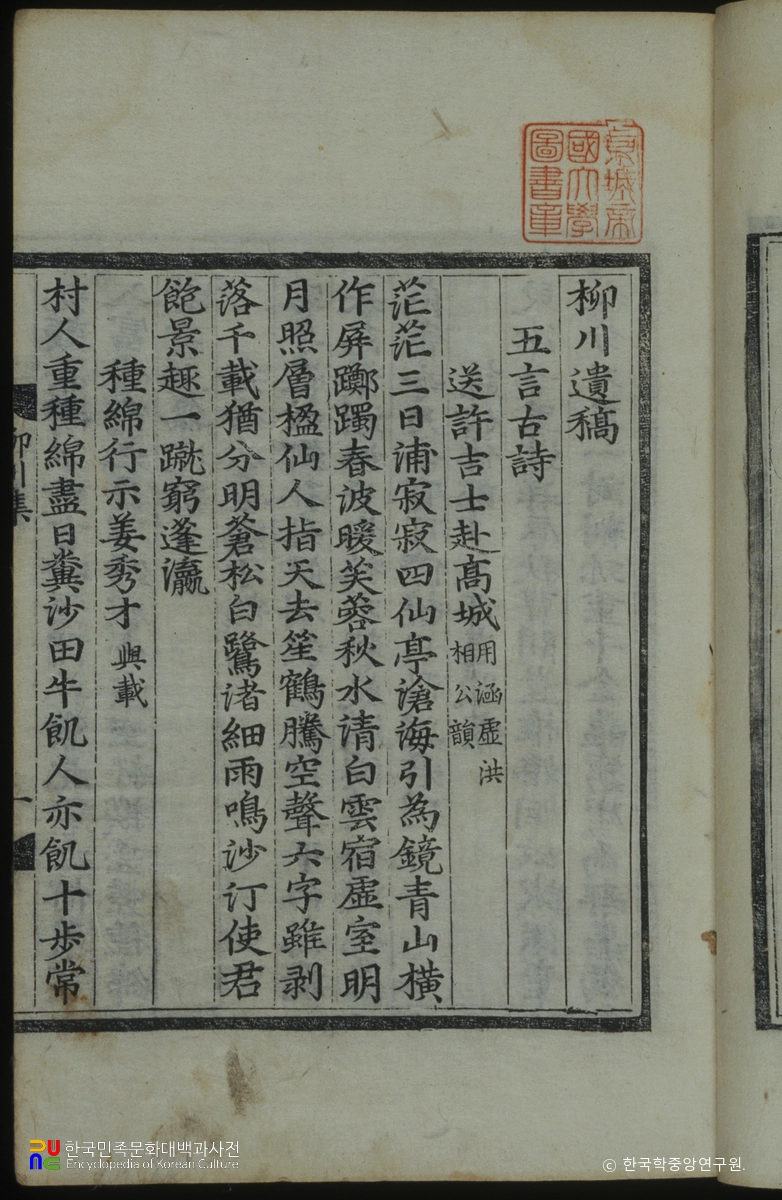 京城帝
國大學
圖書章
柳川遺稿
五言古詩
送許吉士赴高城用涵虛洪相公韻
茫茫三日浦寂寂四仙亭滄海引為鏡青山橫
作屏躑躅春波暖芙蓉秋水清白雲宿虛室明
月照層楹仙人指天去笙鶴騰空聲六字雖剥
落千載猶分明蒼松白鷺渚細雨鳴沙汀使君
飽景趣一蹴窮蓬瀛
種綿行示姜秀才與載
村人重種綿盡日糞沙田牛飢人亦飢十步常
柳川集
一
한국민족문화대백과사전
Encyclopedia of Korean Culture
ⓒ 한국학중앙연구원.